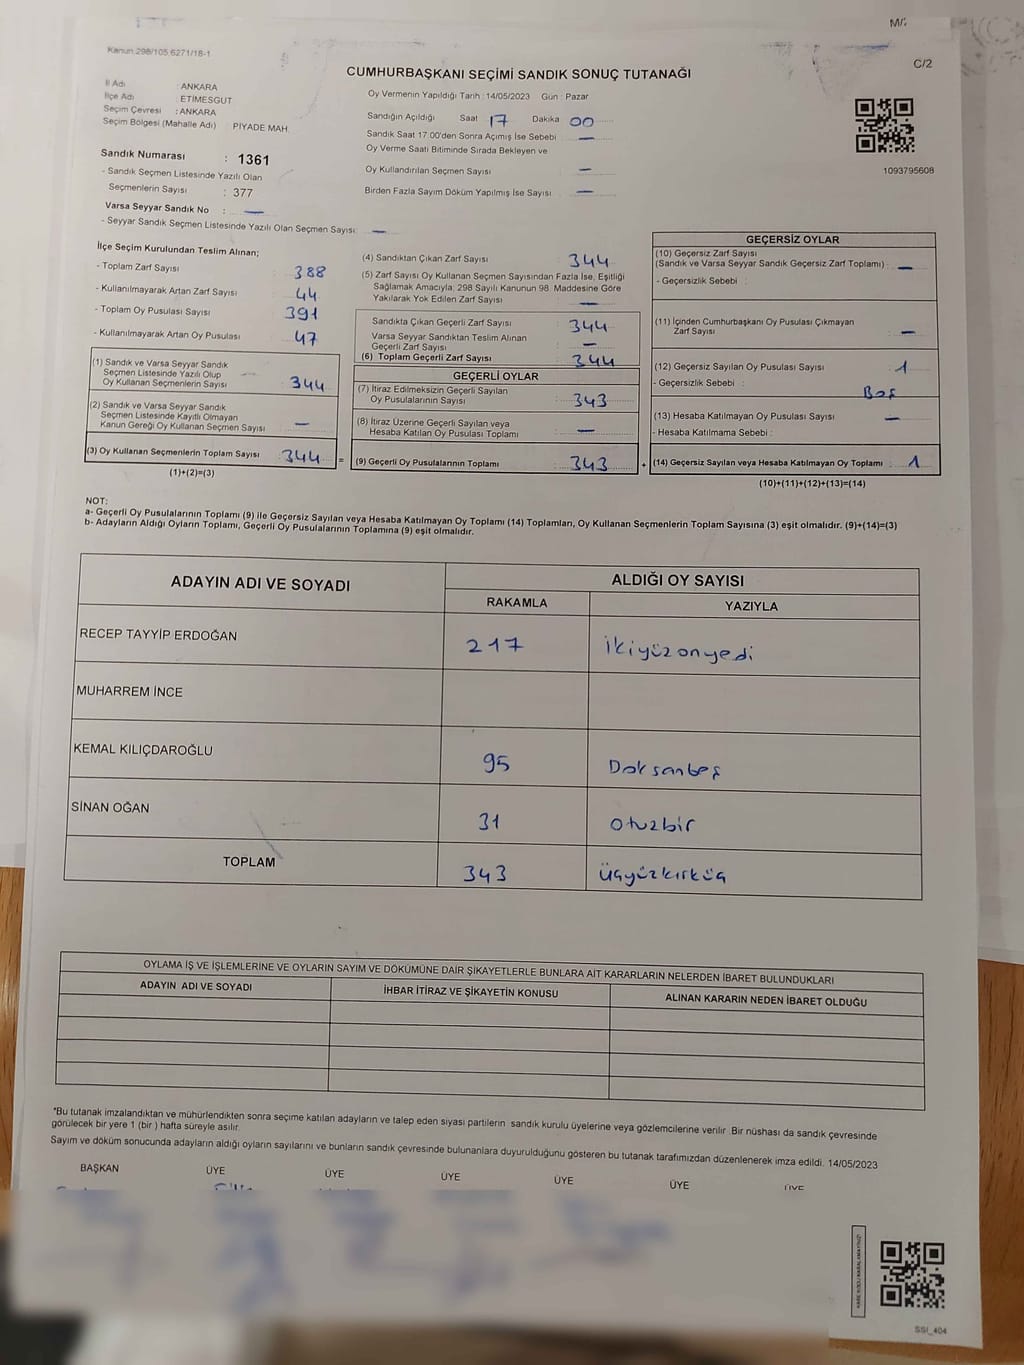 M/:
Kanun 298/105 6271/18-1
C/2
CUMHURBAŞKANI SEÇİMİ SANDIK SONUÇ TUTANAĞI
İl Adı : ANKARA
İlçe Adı : ETİMESGUT
Seçim Çevresi : ANKARA
Seçim Bölgesi (Mahalle Adı) : PİYADE MAH.
Oy Vermenin Yapıldığı Tarih : 14/05/2023 Gün : Pazar
Sandığın Açıldığı Saat 17 Dakika 00
Sandık Saat 17:00'den Sonra Açılmış İse Sebebi —
Oy Verme Saati Bitiminde Sırada Bekleyen ve
Oy Kullandırılan Seçmen Sayısı —
Birden Fazla Sayım Döküm Yapılmış İse Sayısı —
1093795608
Sandık Numarası : 1361
- Sandık Seçmen Listesinde Yazılı Olan
Seçmenlerin Sayısı : 377
Varsa Seyyar Sandık No : —
- Seyyar Sandık Seçmen Listesinde Yazılı Olan Seçmen Sayısı: —
İlçe Seçim Kurulundan Teslim Alınan;
- Toplam Zarf Sayısı 388
- Kullanılmayarak Artan Zarf Sayısı 44
- Toplam Oy Pusulası Sayısı 391
- Kullanılmayarak Artan Oy Pusulası 47
(1) Sandık ve Varsa Seyyar Sandık
Seçmen Listesinde Yazılı Olup
Oy Kullanan Seçmenlerin Sayısı 344
(2) Sandık ve Varsa Seyyar Sandık
Seçmen Listesinde Kayıtlı Olmayan
Kanun Gereği Oy Kullanan Seçmen Sayısı —
(3) Oy Kullanan Seçmenlerin Toplam Sayısı 344 =
(1)+(2)=(3)
(4) Sandıktan Çıkan Zarf Sayısı 344
(5) Zarf Sayısı Oy Kullanan Seçmen Sayısından Fazla İse, Eşitliği
Sağlamak Amacıyla; 298 Sayılı Kanunun 98. Maddesine Göre
Yakılarak Yok Edilen Zarf Sayısı —
Sandıkta Çıkan Geçerli Zarf Sayısı 344
Varsa Seyyar Sandıktan Teslim Alınan
Geçerli Zarf Sayısı —
(6) Toplam Geçerli Zarf Sayısı 344
GEÇERLİ OYLAR
(7) İtiraz Edilmeksizin Geçerli Sayılan
Oy Pusulalarının Sayısı 343
(8) İtiraz Üzerine Geçerli Sayılan veya
Hesaba Katılan Oy Pusulası Toplamı —
(9) Geçerli Oy Pusulalarının Toplamı 343 +
GEÇERSİZ OYLAR
(10) Geçersiz Zarf Sayısı
(Sandık ve Varsa Seyyar Sandık Geçersiz Zarf Toplamı) : —
- Geçersizlik Sebebi :
(11) İçinden Cumhurbaşkanı Oy Pusulası Çıkmayan
Zarf Sayısı —
(12) Geçersiz Sayılan Oy Pusulası Sayısı : 1
- Geçersizlik Sebebi : Boş
(13) Hesaba Katılmayan Oy Pusulası Sayısı —
- Hesaba Katılmama Sebebi :
(14) Geçersiz Sayılan veya Hesaba Katılmayan Oy Toplamı : 1
(10)+(11)+(12)+(13)=(14)
NOT:
a- Geçerli Oy Pusulalarının Toplamı (9) ile Geçersiz Sayılan veya Hesaba Katılmayan Oy Toplamı (14) Toplamları, Oy Kullanan Seçmenlerin Toplam Sayısına (3) eşit olmalıdır. (9)+(14)=(3)
b- Adayların Aldığı Oyların Toplamı, Geçerli Oy Pusulalarının Toplamına (9) eşit olmalıdır.
ADAYIN ADI VE SOYADI ALDIĞI OY SAYISI
RAKAMLA YAZIYLA
RECEP TAYYİP ERDOĞAN 217 ikiyüzonyedi
MUHARREM İNCE
KEMAL KILIÇDAROĞLU 95 Doksanbeş
SİNAN OĞAN 31 otuzbir
TOPLAM 343 üçyüzkırküç
OYLAMA İŞ VE İŞLEMLERİNE VE OYLARIN SAYIM VE DÖKÜMÜNE DAİR ŞİKAYETLERLE BUNLARA AİT KARARLARIN NELERDEN İBARET BULUNDUKLARI
ADAYIN ADI VE SOYADI İHBAR İTİRAZ VE ŞİKAYETİN KONUSU ALINAN KARARIN NEDEN İBARET OLDUĞU
*Bu tutanak imzalandıktan ve mühürlendikten sonra seçime katılan adayların ve talep eden siyasi partilerin sandık kurulu üyelerine veya gözlemcilerine verilir. Bir nüshası da sandık çevresinde
görülecek bir yere 1 (bir) hafta süreyle asılır.
Sayım ve döküm sonucunda adayların aldığı oyların sayılarını ve bunların sandık çevresinde bulunanlara duyurulduğunu gösteren bu tutanak tarafımızdan düzenlenerek imza edildi. 14/05/2023
BAŞKAN ÜYE ÜYE ÜYE ÜYE ÜYE ÜYE
KARE KODU KARALAMAYINIZ!
SSI_404